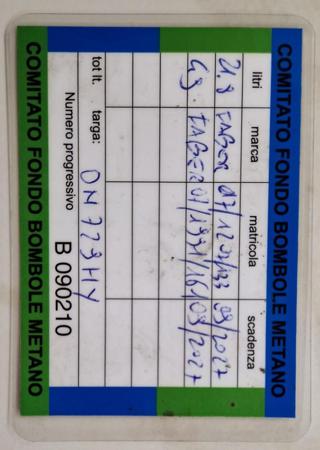 COMITATO FONDO BOMBOLE METANO
litri marca matricola scadenza
FABER 09/2027
FABER 09/2027
tot lt. targa: DN 729 HY
Numero progressivo B 090210
COMITATO FONDO BOMBOLE METANO